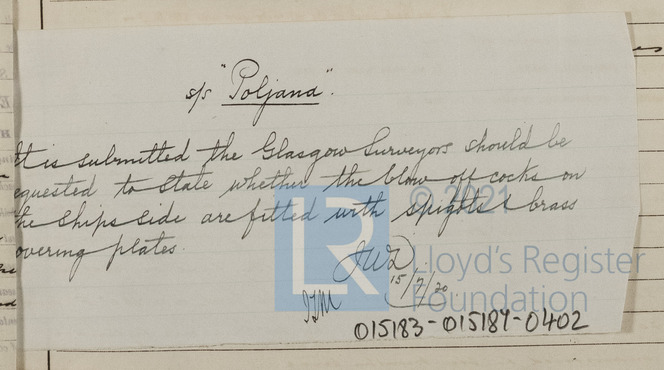 s/s "Poljana".
It is submitted the Glasgow Surveyors should be
equested to state whether the blow off cocks on
he ships side are fitted with spigots & brass
overing plates.
JWD
15/7/20
015183-015187-0402
© 2021
Lloyd's Register
Foundation
LR